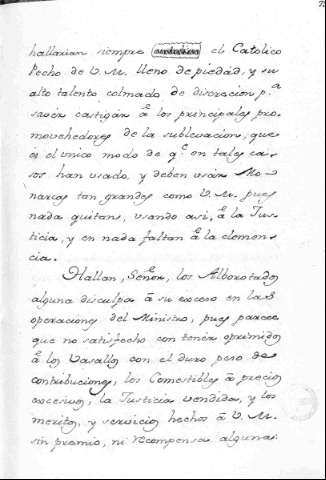 hallarian siempre el Catolico
Pecho de V. M. lleno de piedad, y su
alto talento colmado de discrecion p.ª
saver castigar â los principales pro-
movehedores de la sublevacion, que
es el unico modo de q.e en tales ca-
sos han usado, y deben usar Mo-
narcas tan grandes como V. M. pues
nada quitan, usando asi, â la Jus-
ticia, y en nada faltan â la clemen-
cia.
Hallan, Señor, los Alborotados
alguna disculpa â su exceso en las
operaciones del Ministro, pues parece
que no satisfecho con tener oprimidos
â los Vasallos con el duro peso de
contribuciones, los Comestibles â precios
excesivos, la Justicia vendida, y los
meritos, y servicios hechos â V. M.
sin premio, ni recompensa alguna.